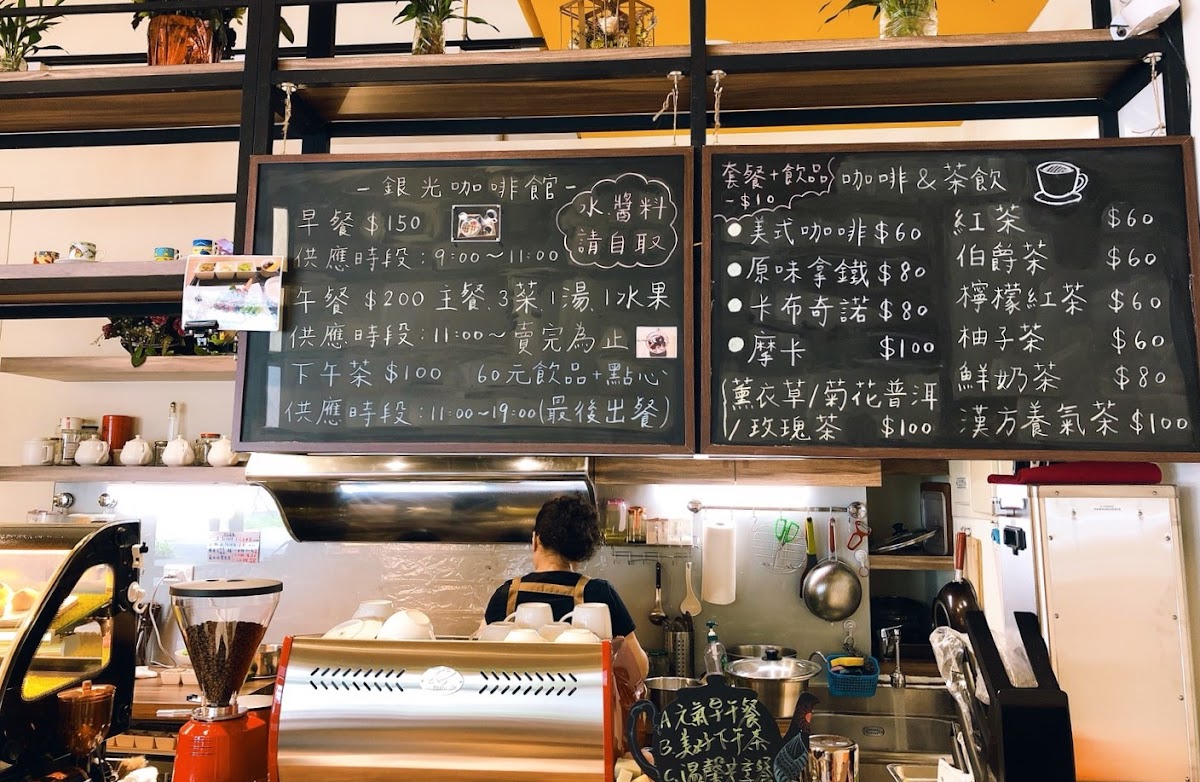 -銀光咖啡館-
水.醬料
請自取
早餐 $150
供應時段:9:00~11:00
午餐 $200 主餐.3菜1湯.1水果
供應時段:11:00~賣完為止
下午茶 $100 60元飲品+點心
供應時段:11:00~19:00(最後出餐)
套餐+飲品
-$10
咖啡&茶飲
美式咖啡 $60
原味拿鐵 $80
卡布奇諾 $80
摩卡 $100
(薰衣草/菊花普洱
/玫瑰茶 $100
紅茶 $60
伯爵茶 $60
檸檬紅茶 $60
柚子茶 $60
鮮奶茶 $80
漢方養氣茶 $100
A.元氣早午餐
B.美好下午茶